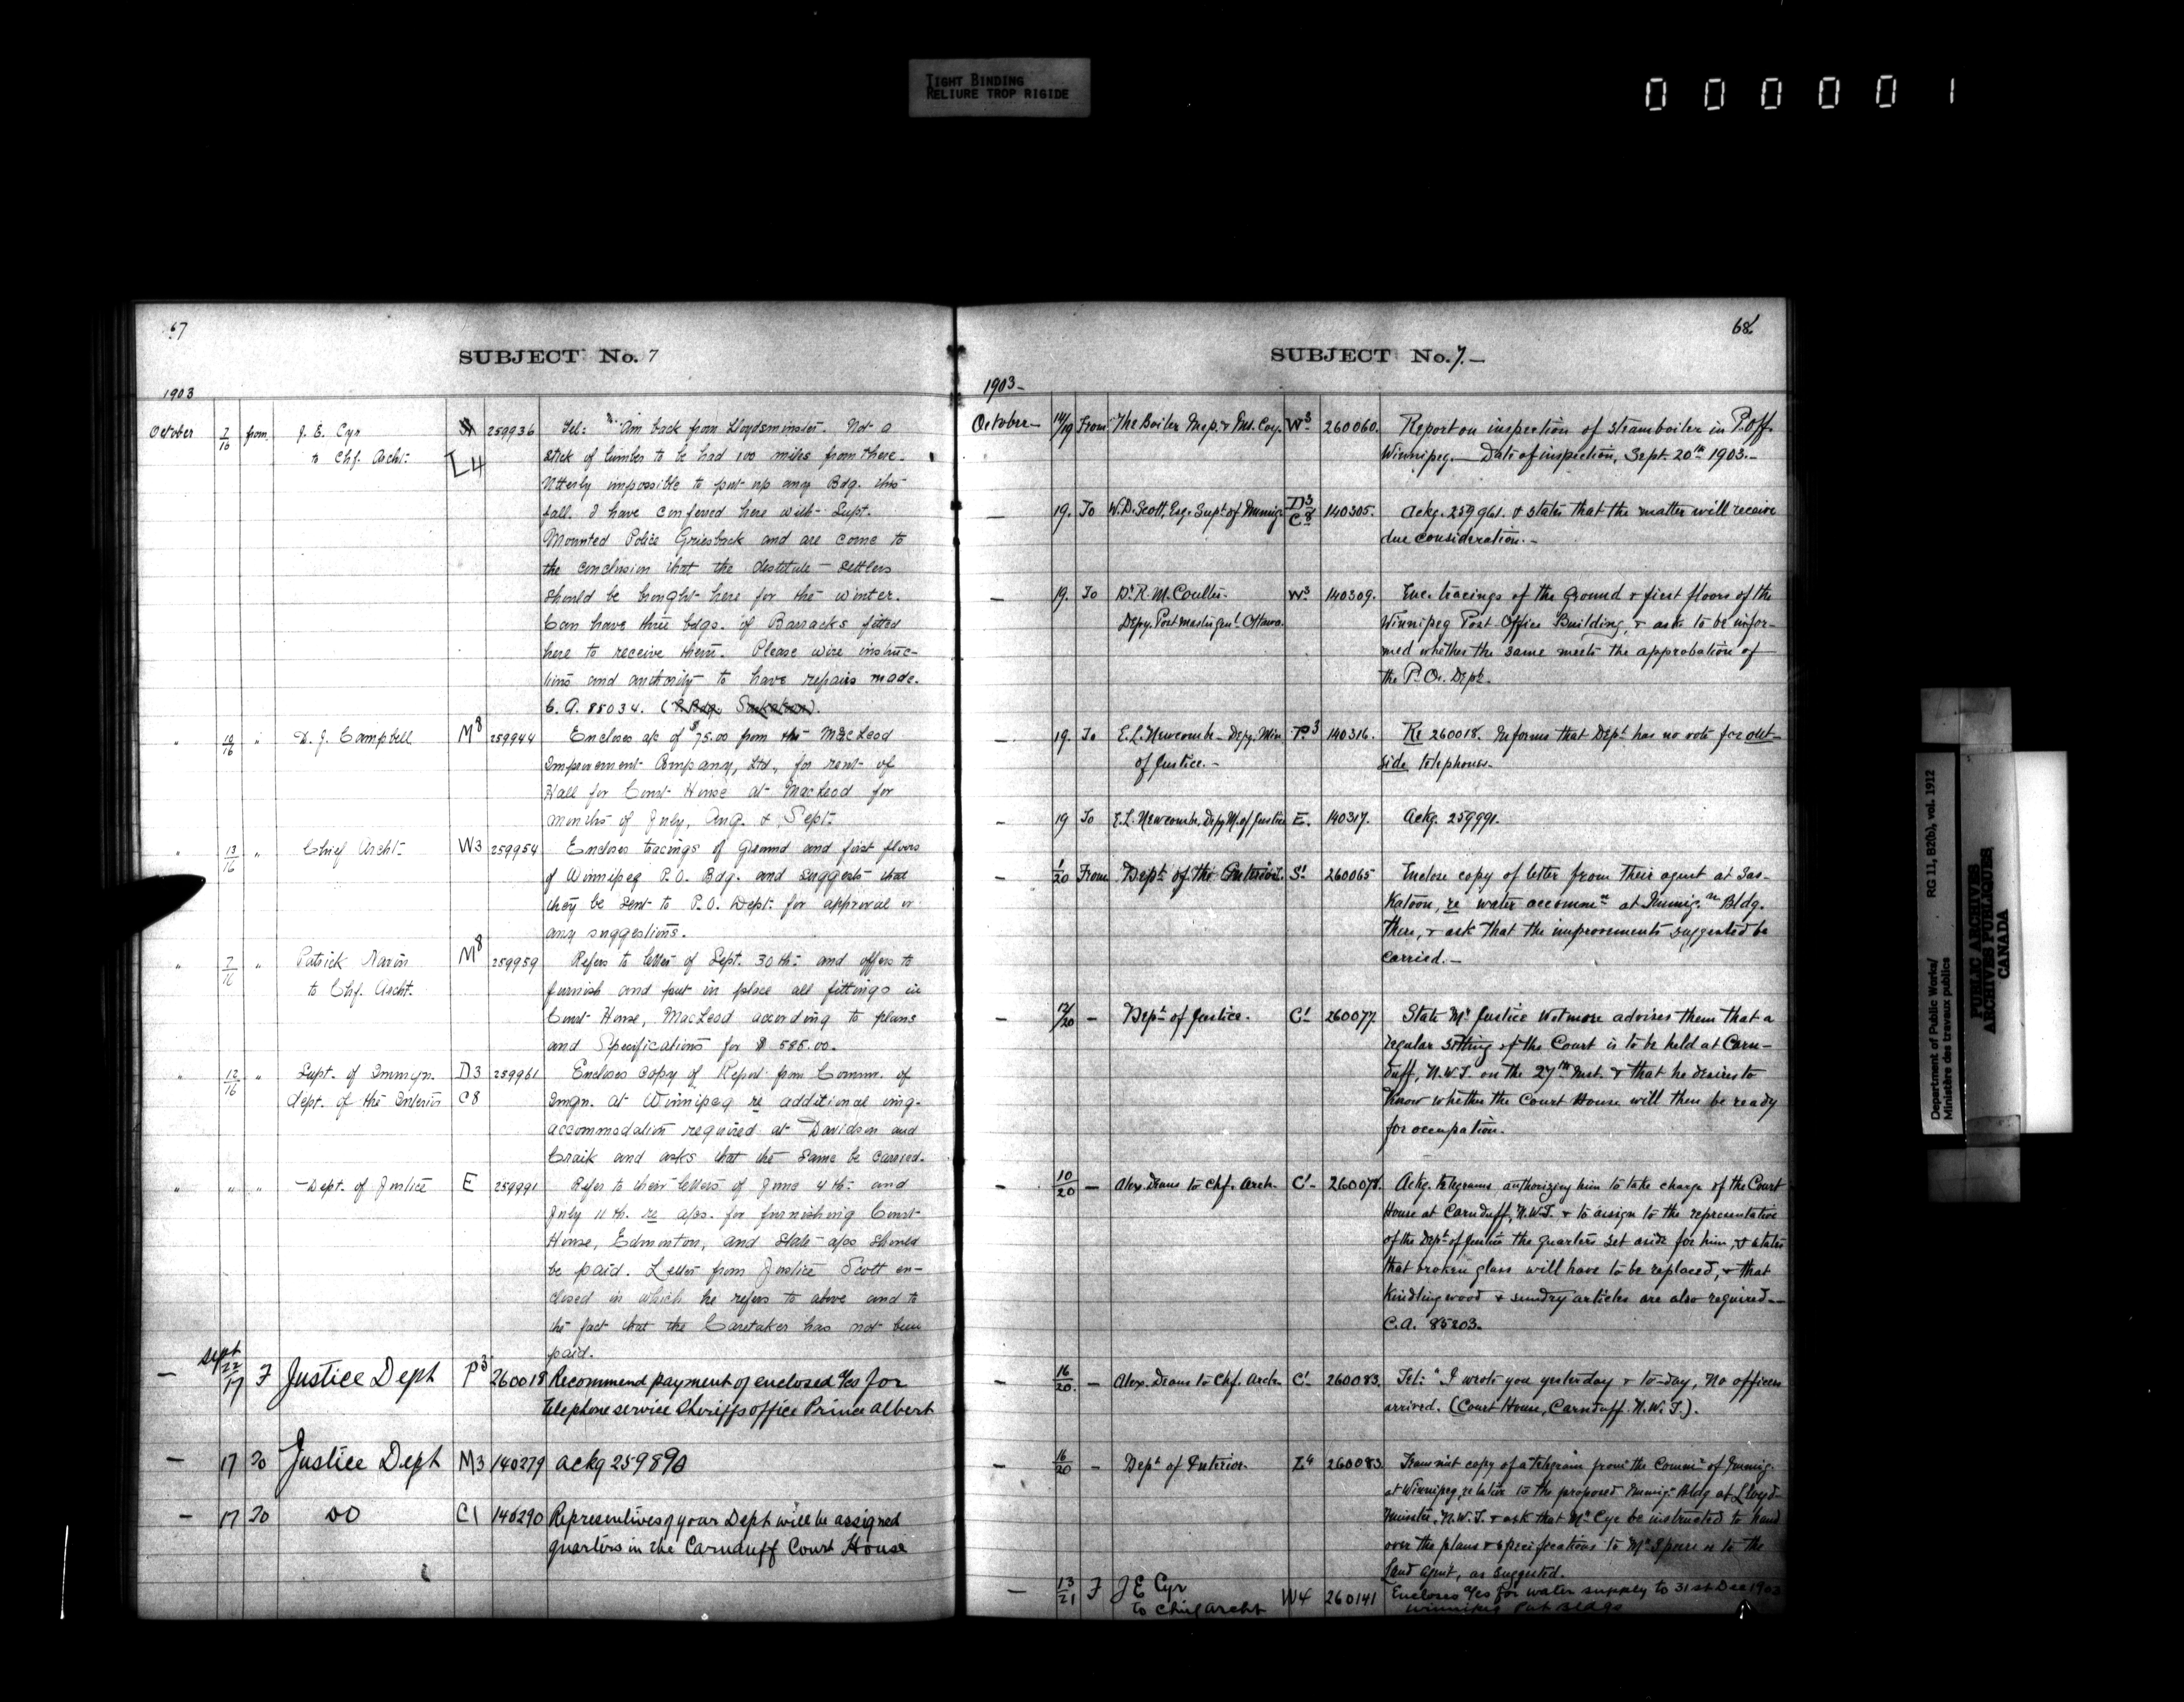 TIGHT BINDING
RELIURE TROP RIGIDE
000001
67
SUBJECT No. 7
1903
October 7/16 from J. E. Cyr 259936 Tel: "Am back from Lloydsminster. Not a
to Chf. Archt. L4 stick of lumber to be had 100 miles from there.
Utterly impossible to put up any Bdg. this
fall. I have conferred here with Supt.
Mounted Police Griesback and are come to
the conclusion that the destitute settlers
should be brought here for the winter.
Can have three bdgs. of Barracks fitted
here to receive them. Please wire instruc-
tions and authority to have repairs made.
C. A. 85034.
" 10/16 " D. J. Campbell M8 259944 Encloses a/c of $75.00 from the MacLeod
Improvement Company, Ltd., for rent of
Hall for Court House at MacLeod for
months of July, Aug. & Sept.
" 13/16 " Chief Archt. W3 259954 Encloses tracings of Ground and first floors
of Winnipeg P.O. Bdg. and suggests that
they be sent to P.O. Dept. for approval or
any suggestions.
" 7/16 " Patrick Navin M8 259959 Refers to letter of Sept. 30th. and offers to
to Chf. Archt. furnish and put in place all fittings in
Court House, MacLeod according to plans
and Specifications for $585.00.
" 12/16 " Supt. of Immgn. D3 259961 Encloses copy of Report from Commr. of
Dept. of the Interior C8 Imgn. at Winnipeg re additional img.
accommodation required at Davidson and
Craik and asks that the same be carried.
" " " Dept. of Justice E 259991 Refer to their letters of June 4th. and
July 11th. re a/cs. for furnishing Court
House, Edmonton, and state a/cs should
be paid. Letter from Justice Scott en-
closed in which he refers to above and to
the fact that the Caretaker has not been
paid.
— Sept 22/17 F Justice Dept P3 260018 Recommend payment of enclosed a/cs for
telephone service Sheriffs office Prince Albert
— 17 To Justice Dept M3 140279 ackg 259890
— 17 To DO C1 140290 Representives of your Dept will be assigned
quarters in the Carnduff Court House
68
SUBJECT No. 7.—
1903—
October— 14/19 From The Boiler Insp. & Ins. Coy. W3 260060. Report on inspection of steamboiler in P. off.
Winnipeg.— Date of inspection, Sept. 20th 1903.—
— 19. To W. D. Scott, Esq. Supt of Immig. D3 C8 140305. Ackg. 259961. & states that the matter will receive
due consideration.—
— 19. To Dr R. M. Coulter. W3 140309. Enc. tracings of the Ground & first floors of the
Depy. Postmaster Genl. Ottawa. Winnipeg Post Office Building, & ask to be infor-
med whether the same meets the approbation of
the P. O. Dept.
— 19. To E. L. Newcombe— Depy. Min P3 140316. Re 260018. Informs that Dept has no vote for out-
of Justice.— side telephones.
— 19 To E. L. Newcombe, Depy M. of Justice E. 140317. Ackg. 259991.
— 1/20 From Dept of the Interior. S1 260065 Enclose copy of letter from their agent at Sas-
katoon, re water accommn at Immig.n Bldg.
there, & ask that the improvements suggested be
carried.—
— 12/20 — Dept of Justice. C1 260077. State Mr Justice Wetmore advises them that a
regular sitting of the Court is to be held at Carn-
duff, N.W.T. on the 27th inst. & that he desires to
know whether the Court House will then be ready
for occupation.
— 10/20 — Alex. Deans to Chf. Arch. C1 260078. Ackg. telegrams authorizing him to take charge of the Court
House at Carnduff, N.W.T. & to assign to the representative
of the Dept of Justice the quarters set aside for him, & states
that broken glass will have to be replaced, & that
kindling wood & sundry articles are also required—
C.A. 85203.
— 16/20. — Alex. Deans to Chf. Arch. C1 260083. Tel: "I wrote you yesterday & to-day, no officer
arrived. (Court House, Carnduff. N.W.T.).
— 16/20 — Dept of Interior. L4 260083. Transmit copy of a telegram from the Commr of Immig.
at Winnipeg, relative to the proposed Immig. Bldg at Lloyd-
minster, N.W.T. & ask that Mr Cyr be instructed to hand
over the plans & specifications to Mr Speers or to the
land agent, as suggested.
— 13/21 F J E Cyr W4 260141 Encloses a/cs for water supply to 31st Dec 1903
to Chief Archt Winnipeg Pub Bldgs
Department of Public Works/ RG 11, B2(b), vol. 1912
Ministère des travaux publics
PUBLIC ARCHIVES
ARCHIVES PUBLIQUES
CANADA